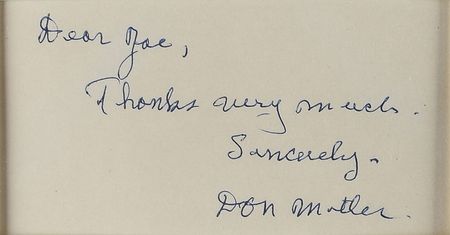 Dear Joe,
Thanks very much.
Sincerely.
Don Motler.